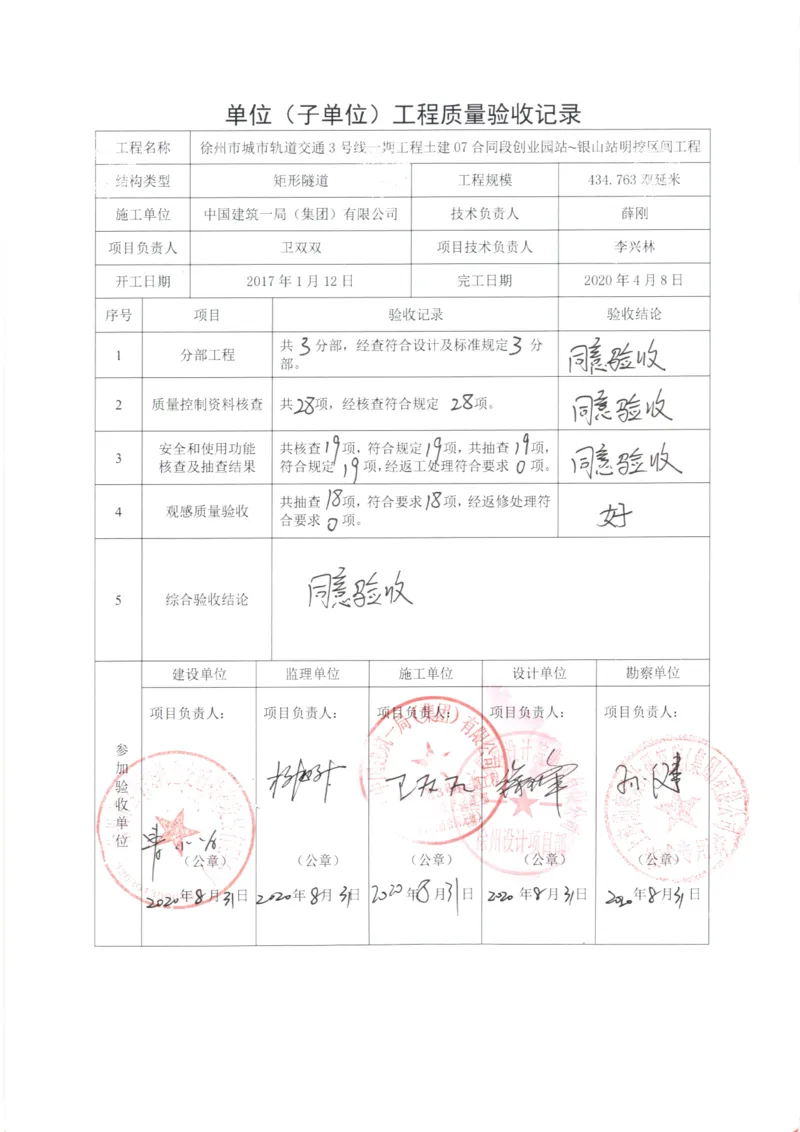 单位（子单位）工程质量验收记录
工程名称 徐州市城市轨道交通3号线一期工程土建07合同段创业园站~银山站明挖区间工程
结构类型 矩形隧道 工程规模 434.763双延米
施工单位 中国建筑一局（集团）有限公司 技术负责人 薛刚
项目负责人 卫双双 项目技术负责人 李兴林
开工日期 2017年1月12日 完工日期 2020年4月8日
序号 项目 验收记录 验收结论
1 分部工程 共3分部，经查符合设计及标准规定3分
部。 同意验收
2 质量控制资料核查 共28项，经核查符合规定 28项。 同意验收
3 安全和使用功能
核查及抽查结果 共核查19项，符合规定19项，共抽查19项，
符合规定19项，经返工处理符合要求0项。 同意验收
4 观感质量验收 共抽查18项，符合要求18项，经返修处理符
合要求0项。 好
5 综合验收结论 同意验收
参加验收单位
建设单位 监理单位 施工单位 设计单位 勘察单位
项目负责人： 项目负责人： 项目负责人： 项目负责人： 项目负责人：
卫双双 孙健
徐州设计项目部
（公章） （公章） （公章） （公章） （公章）
2020年8月31日 2020年8月31日 2020年8月31日 2020年8月31日 2020年8月31日